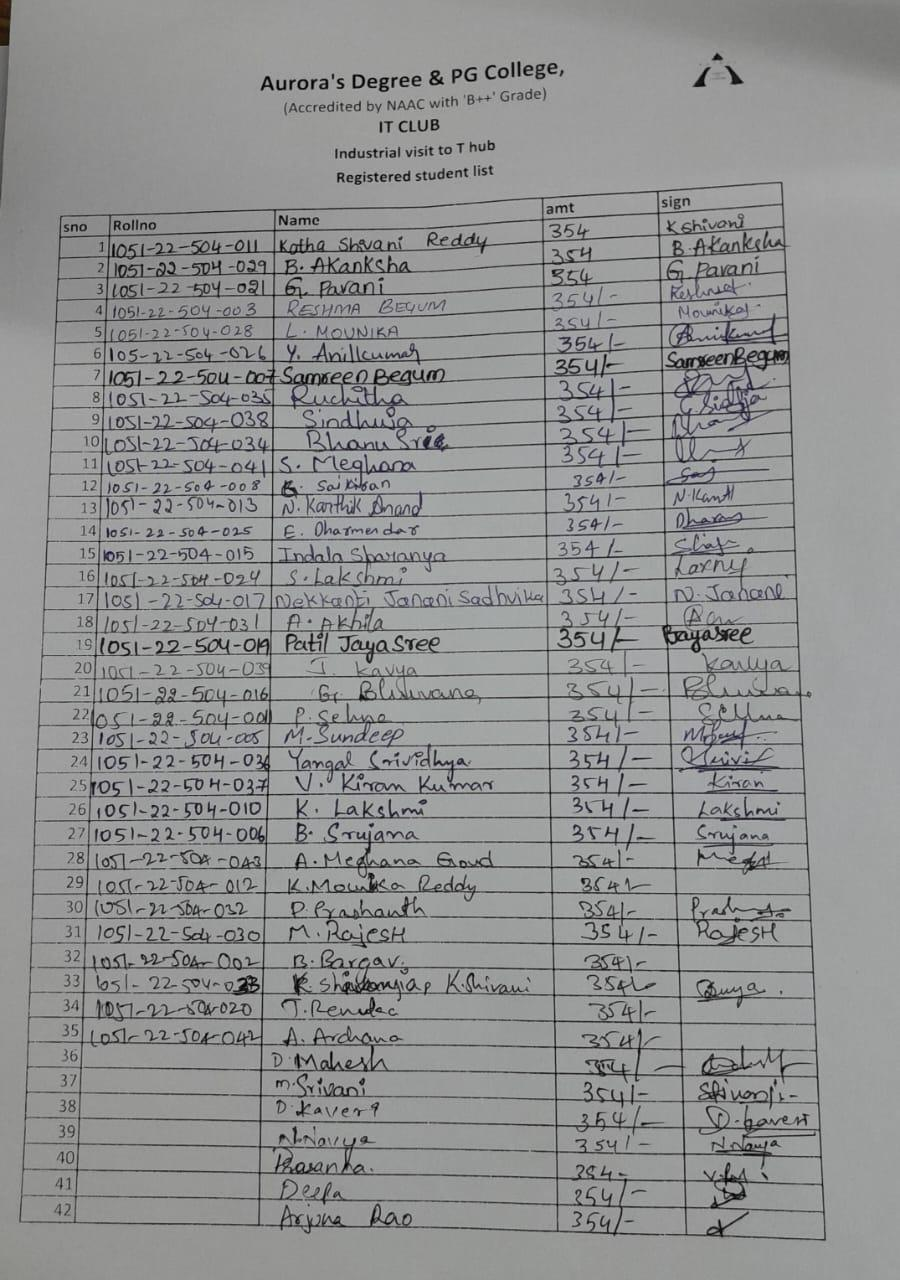 Aurora's Degree & PG College,
(Accredited by NAAC with 'B++' Grade)
IT CLUB
Industrial visit to T hub
Registered student list
sno Rollno Name amt sign
1 1051-22-504-011 Kotha Shivani Reddy 354 K Shivani
2 1051-22-504-029 B. Akanksha 354 B. Akanksha
3 1051-22-504-021 G. Pavani 354 G. Pavani
4 1051-22-504-003 RESHMA BEGUM 354/-
5 1051-22-504-028 L. MOUNIKA 354/- Mounika
6 105-22-504-026 Y. Anilkumar 354/-
7 1051-22-504-007 Samreen Begum 354/- Samreen Begum
8 1051-22-504-035 Ruchitha 354/-
9 1051-22-504-038 Sindhuja 354/-
10 1051-22-504-034 Bhanu Sree 354/-
11 1051-22-504-041 S. Meghana 354/-
12 1051-22-504-008 Saikiran 354/- Sai
13 1051-22-504-013 N. Kanthik Anand 354/- N. Kanth
14 1051-22-504-025 E. Dharmendar 354/-
15 1051-22-504-015 Indala Sharanya 354/-
16 1051-22-504-024 S. Lakshmi 354/-
17 1051-22-504-017 Nekkanti Janani Sadhvika 354/- N. Janani
18 1051-22-504-031 A. Akhila 354/-
19 1051-22-504-019 Patil JayaSree 354/- JayaSree
20 1051-22-504-039 J. Kavya 354/- Kavya
21 1051-22-504-016 G. Bhuvana 354/-
22 1051-22-504-001 P. Sehna 354/-
23 1051-22-504-005 M. Sundeep 354/-
24 1051-22-504-036 Yangal Srividhya 354/-
25 1051-22-504-037 V. Kiran Kumar 354/- Kiran
26 1051-22-504-010 K. Lakshmi 354/- Lakshmi
27 1051-22-504-006 B. Srujana 354/- Srujana
28 1051-22-504-043 A. Meghana Goud 354/-
29 1051-22-504-012 K. Mounika Reddy 354/-
30 1051-22-504-032 P. Prashanth 354/-
31 1051-22-504-030 M. RajesH 354/- RajesH
32 1051-22-504-002 B. Bargavi 354/-
33 1051-22-504-023 K. Shivani 354/-
34 1051-22-504-020 J. Renuka 354/-
35 1051-22-504-042 A. Archana 354/-
36 D. Mahesh 354/-
37 M. Srivani 354/- Srivani
38 D. Kaveri 354/- D. Kaveri
39 N. Navya 354/- N. Navya
40 Prasanna. 354-
41 Deepa 354/-
42 Arjuna Rao 354/-